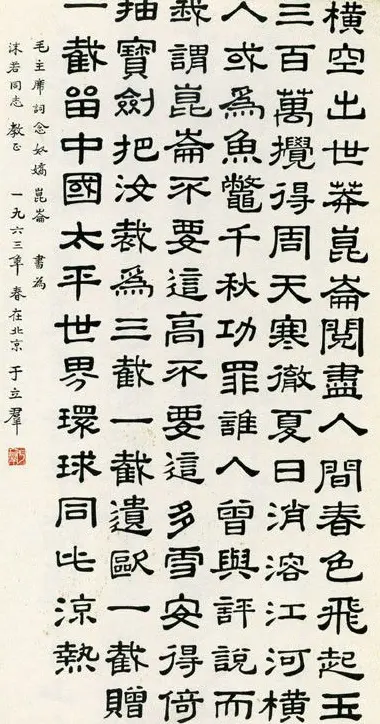 橫空出世莽崑崙閱盡人間春色飛起玉
三百萬攪得周天寒徹夏日消溶江河橫
人或爲魚鱉千秋功罪誰人曾與評說而
我謂崑崙不要這高不要這多雪安得倚
抽寶劍把汝裁爲三截一截遺歐一截贈
一截留中國太平世界環球同此涼熱
毛主席詞念奴嬌 崑崙 書爲
沫若同志 教正 一九六三年春在北京 于立羣